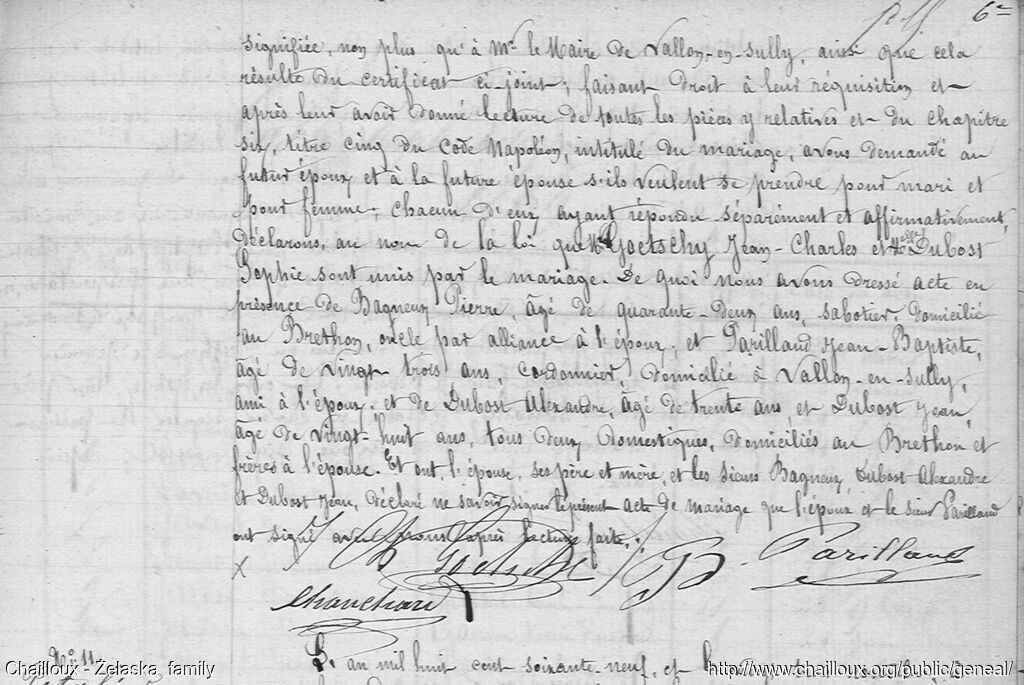 6e
signifiée, non plus qu'à Mr le Maire de Vallon-en-Sully, ainsi que cela
résulte du certificat ci-joint; faisant droit à leur réquisition et
après leur avoir donné lecture de toutes les pièces y relatives et du chapitre
six, titre cinq du code Napoléon, intitulé du mariage, avons demandé au
futur époux et à la future épouse s'ils veulent se prendre pour mari et
pour femme; chacun d'eux ayant répondu séparément et affirmativement,
déclarons, au nom de la loi que Mr Goetschy Jean-Charles et Melle Dubost
Sophie sont unis par le mariage. De quoi nous avons dressé acte en
présence de Bagneux Pierre, âgé de quarante-deux ans, sabotier, domicilié
au Brethon, oncle par alliance à l'époux, et Parillaud Jean-Baptiste,
âgé de vingt-trois ans, cordonnier, domicilié à Vallon-en-Sully,
ami à l'époux, et de Dubost Alexandre, âgé de trente ans et Dubost Jean,
âgé de vingt-huit ans, tous deux domestiques, domiciliés au Brethon et
frères à l'épouse. Et ont, l'épouse, ses père et mère, et les sieurs Bagneux, Dubost Alexandre
et Dubost Jean, déclaré ne savoir signer le présent acte de mariage que l'époux et le sieur Parillaud
ont signé avec nous après lecture faite.
Parillaud
No 11
L'an mil huit cent soixante-neuf, et
Chailloux - Żelaska family
http://www.chailloux.org/public/geneal/